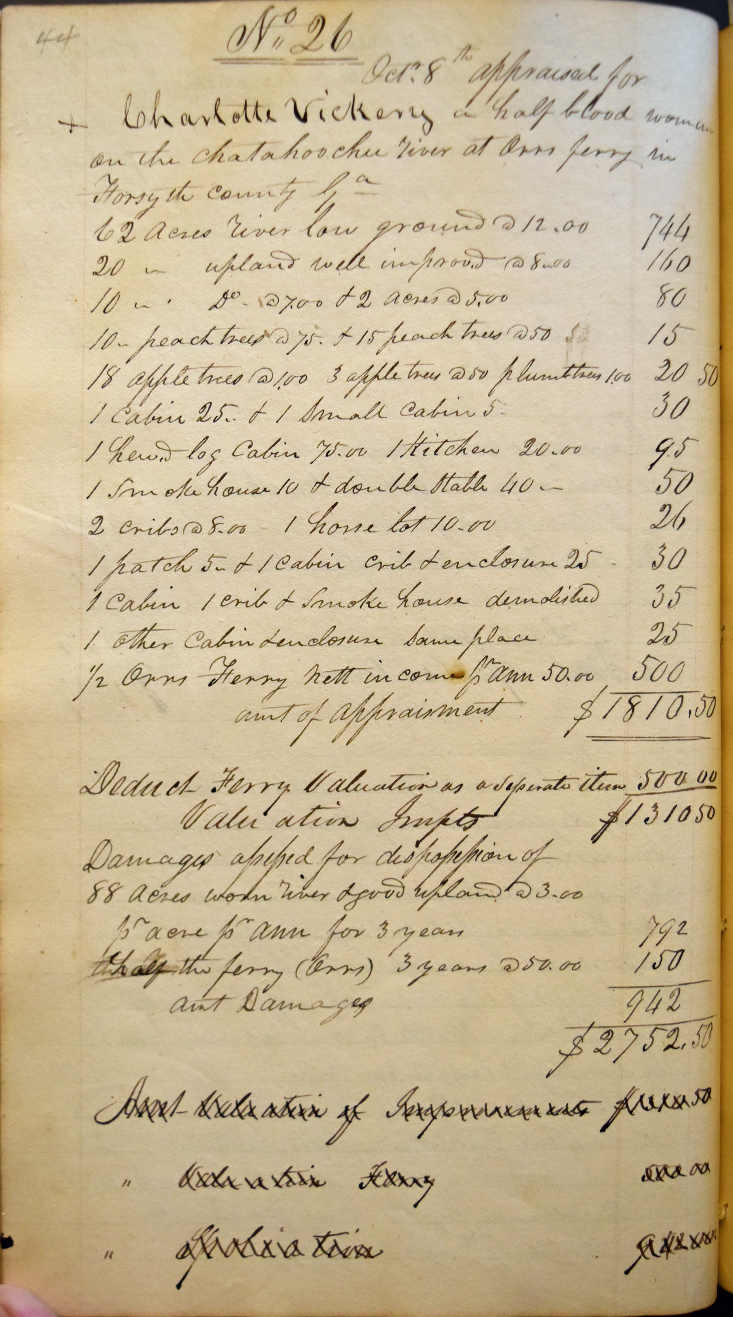 44
No 26
Octr. 8th appraised for
+ Charlotte Vickery a half blood woman
on the chatahoochee river at Orrs ferry in
Forsyth county Ga
62 Acres river low ground @ 12.00 744
20 " upland well improvd @ 8.00 160
10 " Do - @ 7.00 & 2 acres @ 5.00 80
10 peach trees @ 75. & 15 peach trees @ 50 15
18 apple trees @ 1.00 3 apple trees @ 50 plumb trees 1.00 20 50
1 Cabin 25.. & 1 Small Cabin 5- 30
1 hew.d log Cabin 75.00 1 Kitchen 20.00 95
1 Smoke house 10 & double stable 40.- 50
2 cribs @ 8.00 - 1 horse lot 10.00 26
1 patch 5- & 1 cabin crib & enclosure 25 - 30
1 cabin 1 crib & Smoke house demolished 35
1 other cabin & enclosure same place 25
1/2 Orrs Ferry nett income pr Ann 50.00 500
amt of Appraisment $1810.50
Deduct Ferry Valuation as a seperate item 500 00
Valuation Impts $1310 50
Damages assessed for dispossession of
88 Acres worn river & good upland @ 3.00
pr acre pr Ann for 3 years 792
the ferry (Orrs) 3 years @ 50.00 150
amt Damages 942
$2752.50
Amt Valuation of Improvements 50
" Valuation Ferry 500 00
" Spoliation